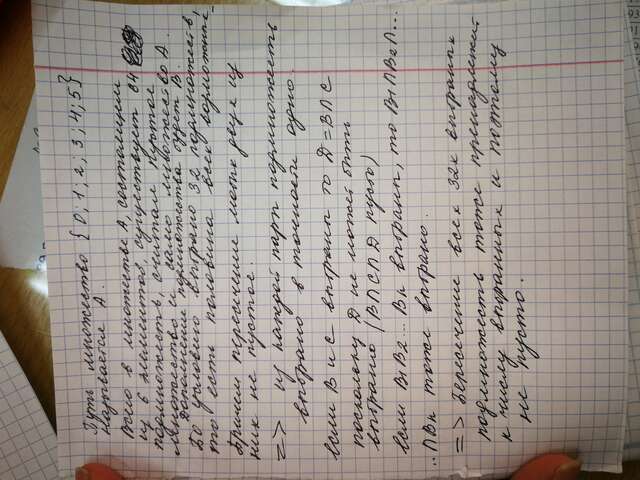 Пусть множество {0; 1; 2; 3; 4; 5}
Называется A.
Всего в множестве A, состоящим
из 6 элементов, существует 64
подмножеств, считая пустое
множество и само множество A.
Дополнение подмножества будет B.
По условию выбрано 32 подмножеств,
то есть половина всех возможных.
Причем пересечение любых двух из
них не пустое.
=> из каждой пары подмножеств
выбрано в точности одно.
если B и C выбраны то D = B∩C
поскольку D не может быть
выбрано (B∩C∩D пусто)
если B1 B2... Bk выбраны, то B1∩B2∩...
..∩Bk тоже выбрано.
=> Пересечение всех 32х выбраных
подмножеств тоже принадлежит
к числу выбранных и поэтому
не пусто.